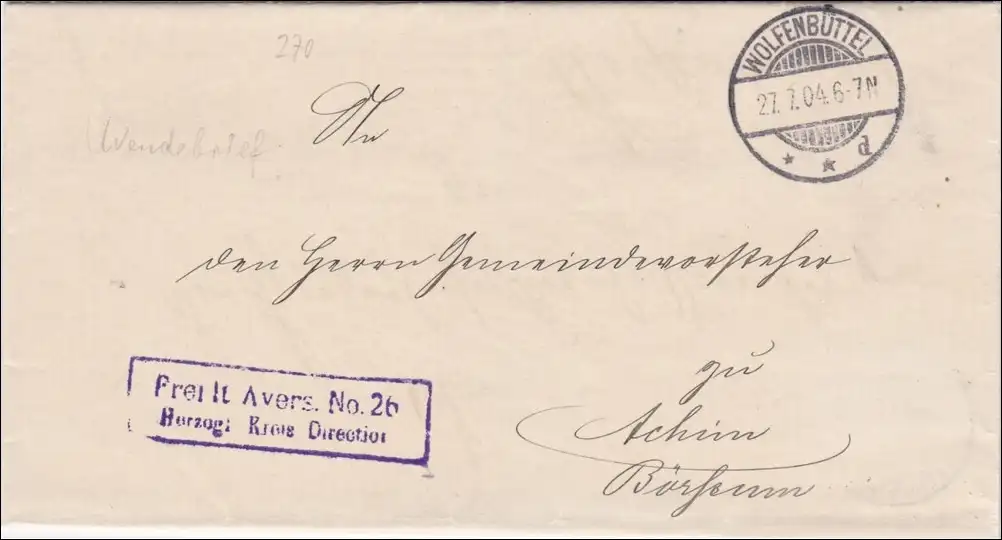 270
WOLFENBÜTTEL
27. 7. 04. 6-7 N
* * d
An
Wendebrief
den Herrn Gemeindevorsteher
zu
Achim
Börßum
Frei lt. Avers. No. 26
Herzogl. Kreis Direction